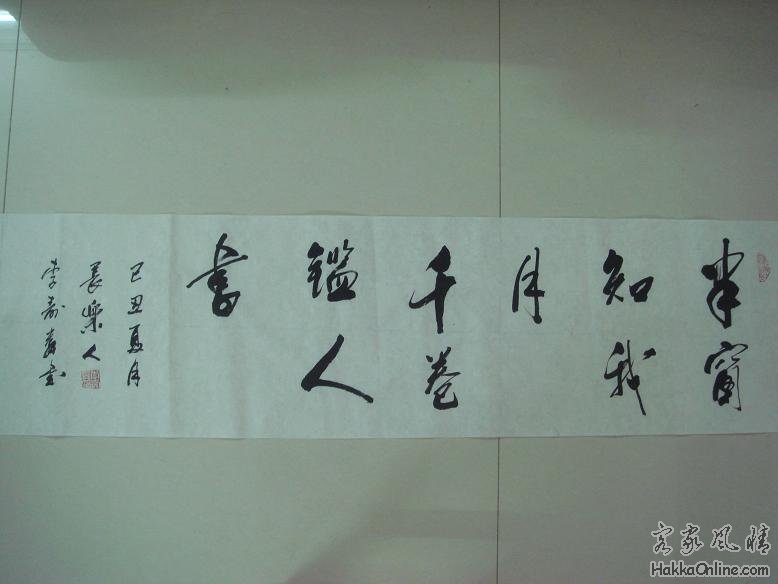 半窗
知我
月
千卷
鑑人
書
己丑夏月
長樂人
李壽
客家风情
HakkaOnline.com